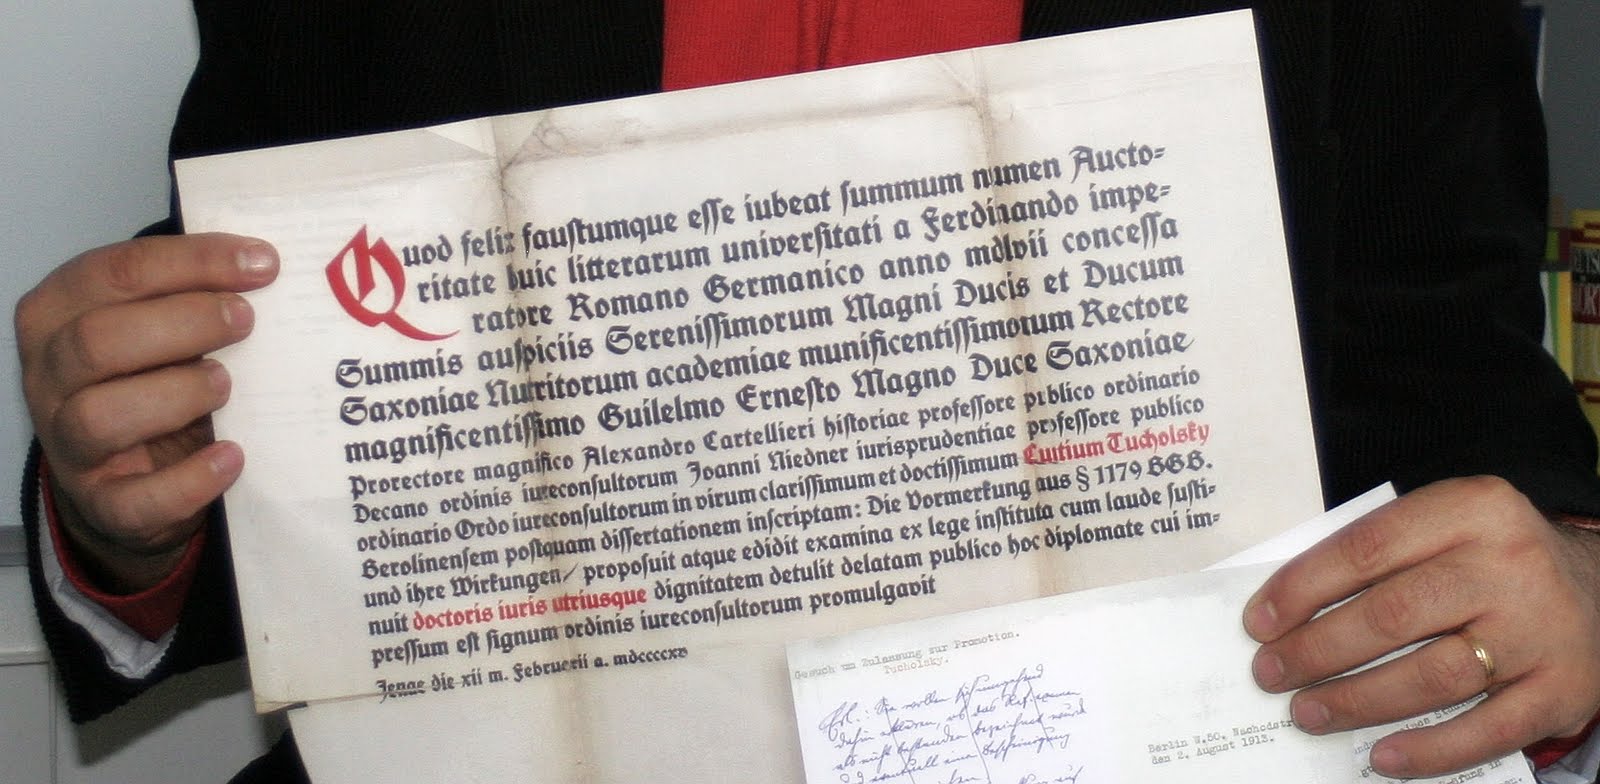 Quod felix faustumque esse iubeat summum numen Aucto=
ritate huic litterarum universitati a Ferdinando impe=
ratore Romano Germanico anno mdlvii concessa
Summis auspiciis Serenissimorum Magni Ducis et Ducum
Saxoniae Nutritorum academiae munificentissimorum Rectore
magnificentissimo Guilelmo Ernesto Magno Duce Saxoniae
Prorectore magnifico Alexandro Cartellieri historiae professore publico ordinario
Decano ordinis iureconsultorum Joanni Niedner iurisprudentiae professore publico
ordinario Ordo iureconsultorum in virum clarissimum et doctissimum Curtium Tucholsky
Berolinensem postquam dissertationem inscriptam: Die Vormerkung aus § 1179 BGB.
und ihre Wirkungen/ proposuit atque edidit examina ex lege instituta cum laude susti=
nuit doctoris iuris utriusque dignitatem detulit delatam publico hoc diplomate cui im=
pressum est signum ordinis iureconsultorum promulgavit
Jenae die xii m. Februarii a. mdccccxv
Gesuch um Zulassung zur Promotion.
Tucholsky.
Berlin W.50. Nachodstr
den 2. August 1913.